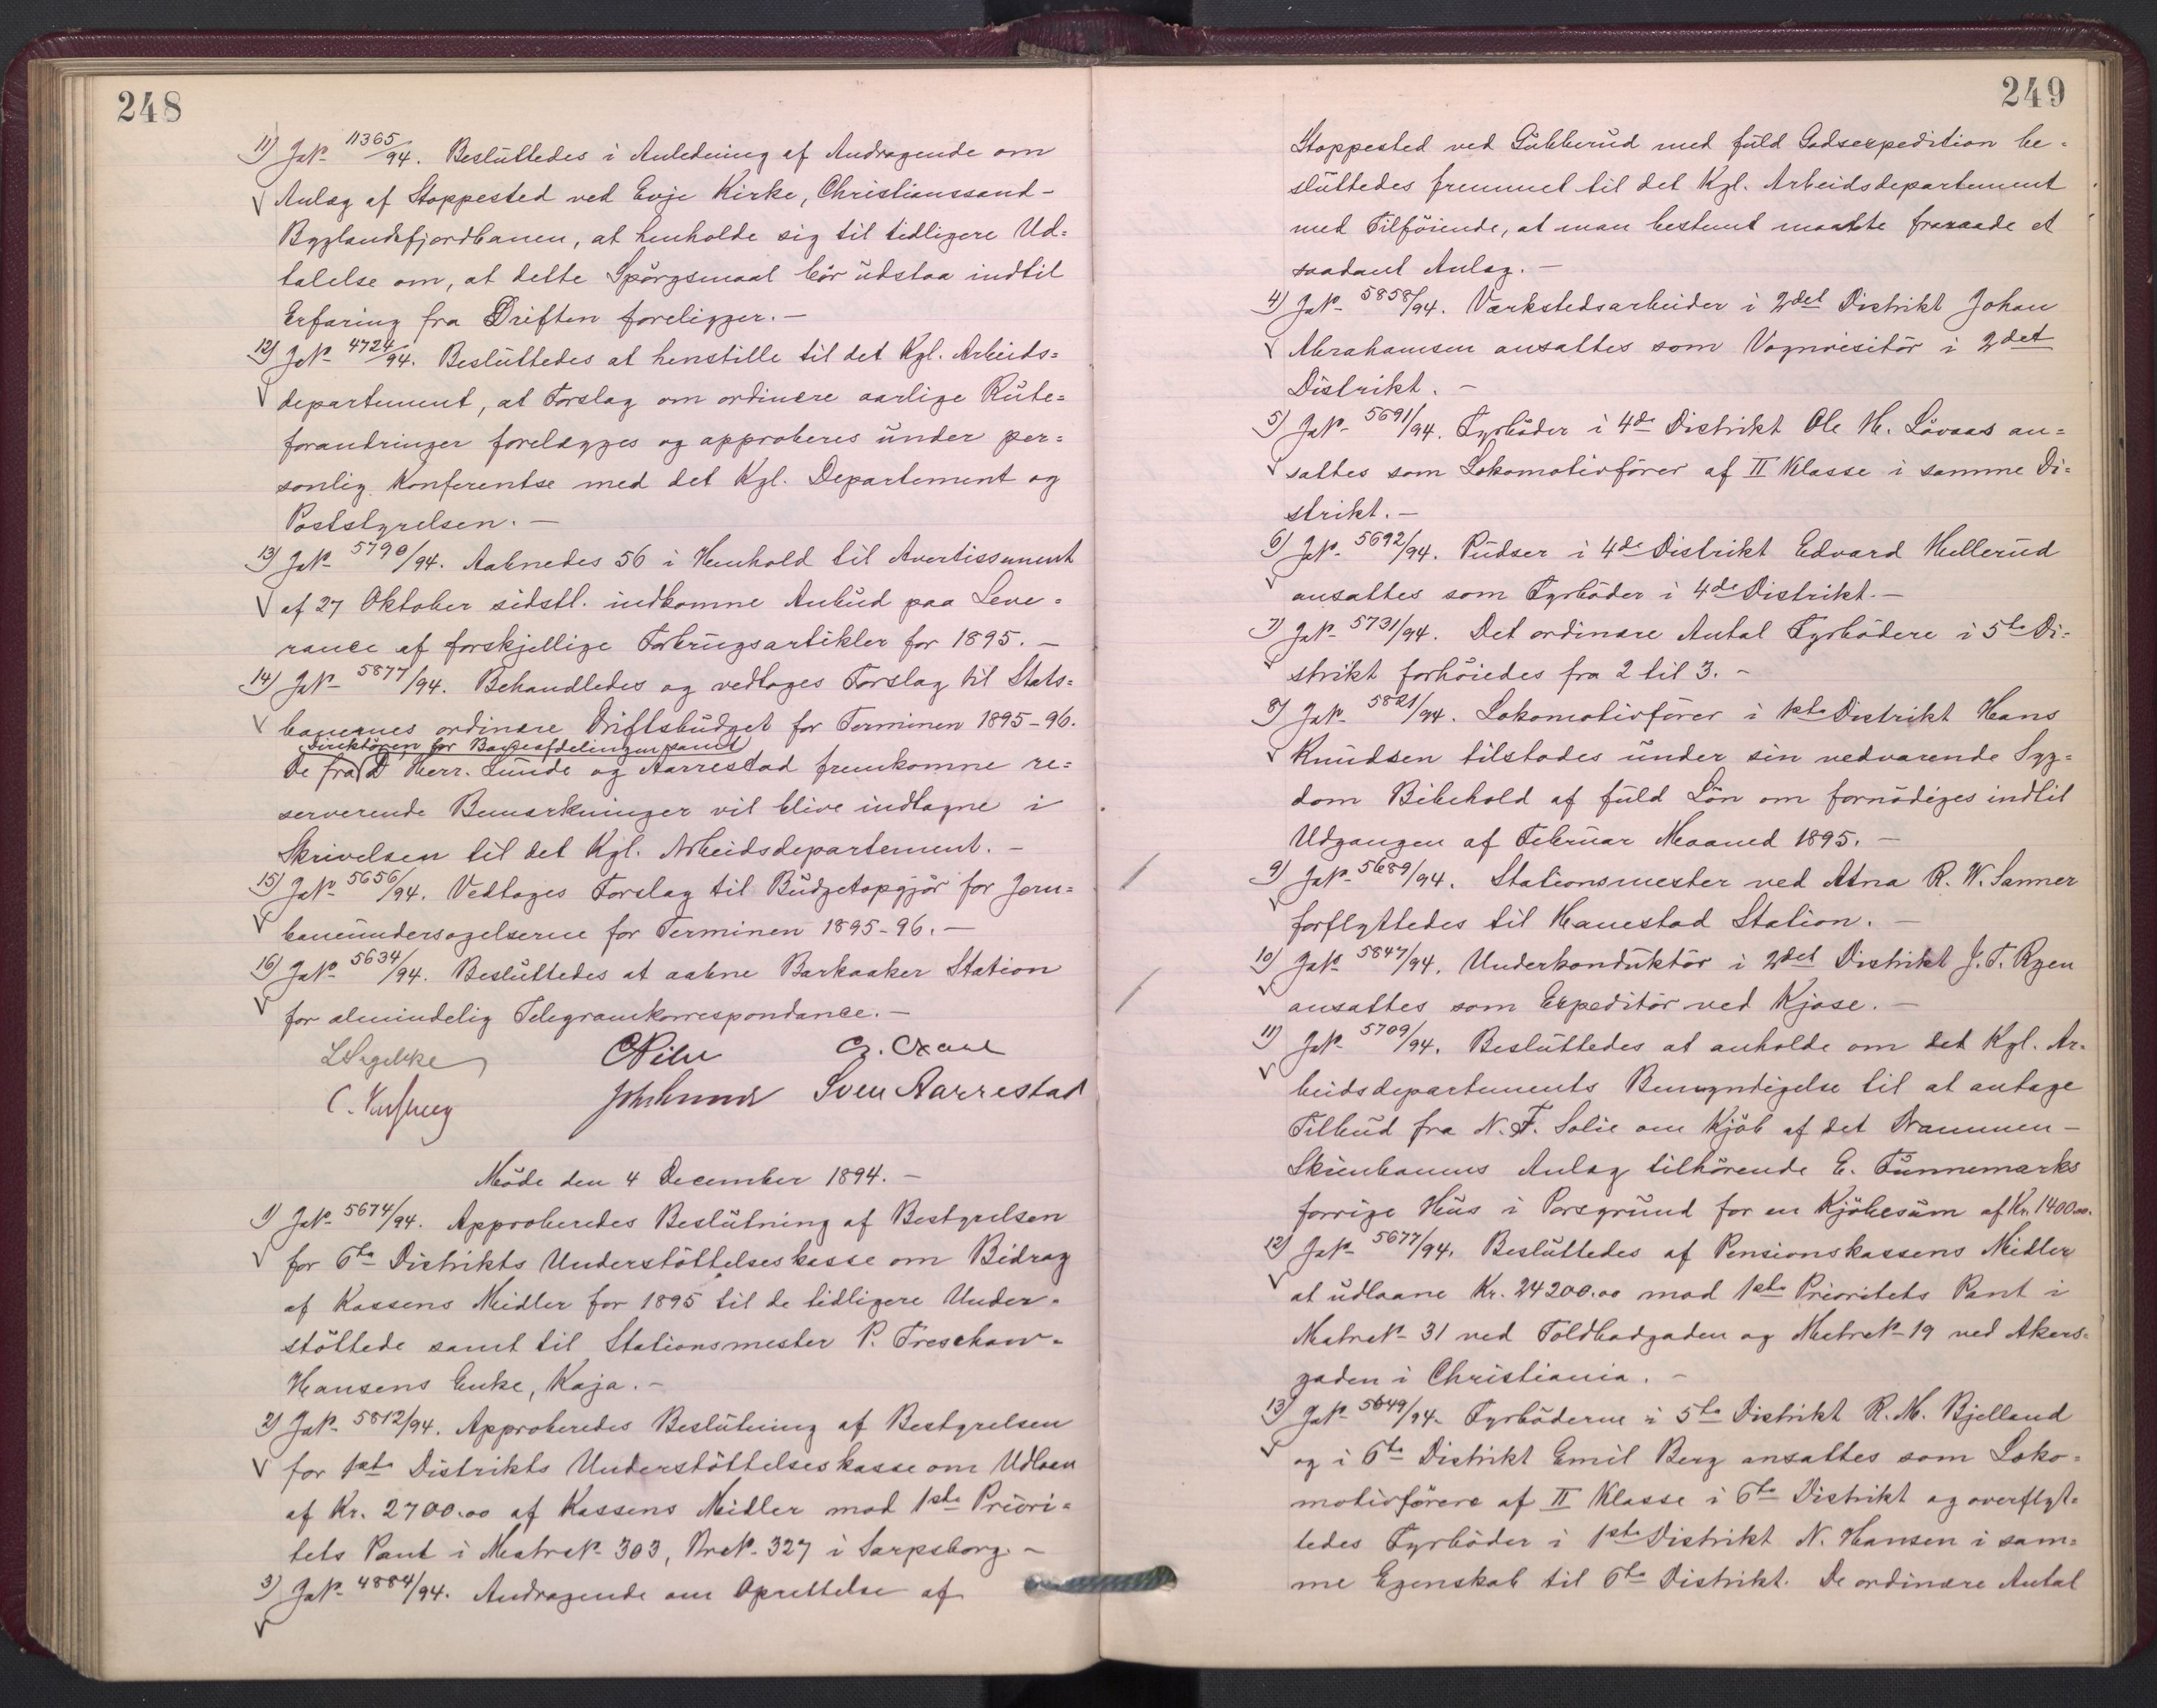 248
11) JNo 11365/94. Besluttedes i Anledning af Andragende om
Anlæg af Stoppested ved Evje Kirke, Christianssand-
Byglandsfjordbanen, at henholde sig til tidligere Ud=
talelse om, at dette Spörgsmaal bör udstaa indtil
Erfaring fra Driften foreligger. —
12) JNo 4724/94. Besluttedes at henstille til det Kgl. Arbeids=
departement, at Forslag om ordinære aarlige Rute=
forandringer forelægges og approberes under per=
sonlig Konferentse med det Kgl. Departement og
Poststyrelsen. —
13) JNo 5790/94. Aabnedes 56 i Henhold til Avertissement
af 27 Oktober sidstl. indkomne Anbud paa Leve=
rance af forskjellige Forbrugsartikler for 1895. —
14) JNo 5877/94. Behandledes og vedtoges Forslag til Stats=
banernes ordinære Driftsbudget for Terminen 1895-96.
Direktören for Baneafdelingen samt
De fra D Herr. Lunde og Aarrestad fremkomne re=
serverende Bemærkninger vil blive indtagne i
Skrivelsen til det Kgl. Arbeidsdepartement. —
15) JNo 5656/94. Vedtoges Forslag til Budgetopgjör for Jern=
baneundersøgelserne for Terminen 1895-96. —
16) JNo 5634/94. Besluttedes at aabne Barkaaker Station
for almindelig Telegramkorrespondance. —
LSegelcke CPihl
Sven Aarrestad
Möde den 4 December 1894. —
1) JNo 5674/94. Approberedes Beslutning af Bestyrelsen
for 6te Distrikts Understöttelseskasse om Bidrag
af Kassens Midler for 1895 til de tidligere Under=
stöttede samt til Stationsmester P. Treschow-
Hansens Enke, Kaja. —
2) JNo 5812/94. Approberedes Beslutning af Bestyrelsen
for 1ste Distrikts Understöttelseskasse om Udlaan
af Kr. 2700.00 af Kassens Midler mod 1ste Priori=
tets Pant i MatrNo 303, BrNo 327 i Sarpsborg. —
3) JNo 4884/94. Andragende om Oprettelse af
249
Stoppested ved Gubberud med fuld Godsexpedition be=
sluttedes fremmet til det Kgl. Arbeidsdepartement
med Tilföiende, at man bestemt maatte fraraade et
saadant Anlæg. —
4) JNo 5858/94. Værkstedsarbeider i 2det Distrikt Johan
Abrahamsen ansattes som Vognvisitör i 2det
Distrikt. —
5) JNo 5691/94. Fyrböder i 4de Distrikt Ole M. Lövaas an=
sattes som Lokomotivförer af II Klasse i samme Di=
strikt. —
6) JNo 5692/94. Pudser i 4de Distrikt Edvard Hellerud
ansattes som Fyrböder i 4de Distrikt. —
7) JNo 5731/94. Det ordinære Antal Fyrbödere i 5te Di=
strikt forhöiedes fra 2 til 3. —
8) JNo 5821/94. Lokomotivförer i 1ste Distrikt Hans
Knudsen tilstodes under sin vedvarende Syg=
dom Bibehold af fuld Lön om fornödiges indtil
Udgangen af Februar Maaned 1895. —
9) JNo 5689/94. Stationsmester ved Atna R. W. Sanner
forflyttedes til Hanestad Station. —
10) JNo 5847/94. Underkonduktör i 2det Distrikt J. T. Ryen
ansattes som Expeditör ved Kjose. —
11) JNo 5709/94. Besluttedes at anholde om det Kgl. Ar=
beidsdepartements Bemyndigelse til at antage
Tilbud fra N. F. Solie om Kjöb af det Drammen-
Skienbanens Anlæg tilhörende E. Tunnemarks
forrige Hus i Porsgrund for en Kjöbesum af Kr. 1400.00.
12) JNo 5677/94. Besluttedes af Pensionskassens Midler
at udlaane Kr. 24200.00 mod 1ste Prioritets Pant i
MatrNo 31 ved Toldbodgaden og MatrNo 19 ved Akers=
gaden i Christiania. —
13) JNo 5649/94. Fyrböderne i 5te Distrikt R. M. Bjelland
og i 6te Distrikt Emil Berg ansattes som Loko=
motivförere af II Klasse i 6te Distrikt og overflyt=
tedes Fyrböder i 1ste Distrikt N. Hansen i sam=
me Egenskab til 6te Distrikt. De ordinære Antal